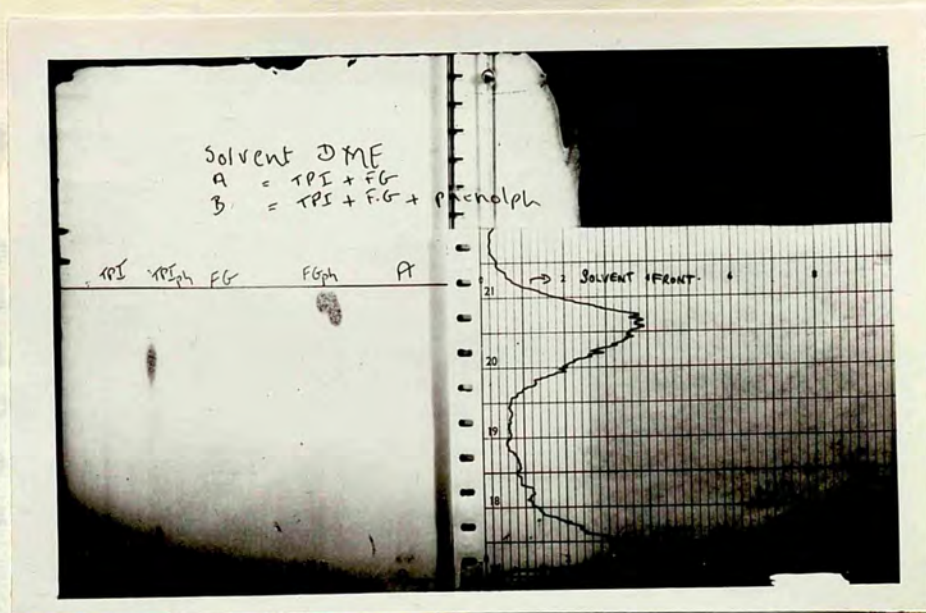 Solvent DMF
A = TPI + FG
B = TPI + F.G + phenolph
TPI TPIph FG FGph A
→ 2 SOLVENT FRONT.
21
20
19
18